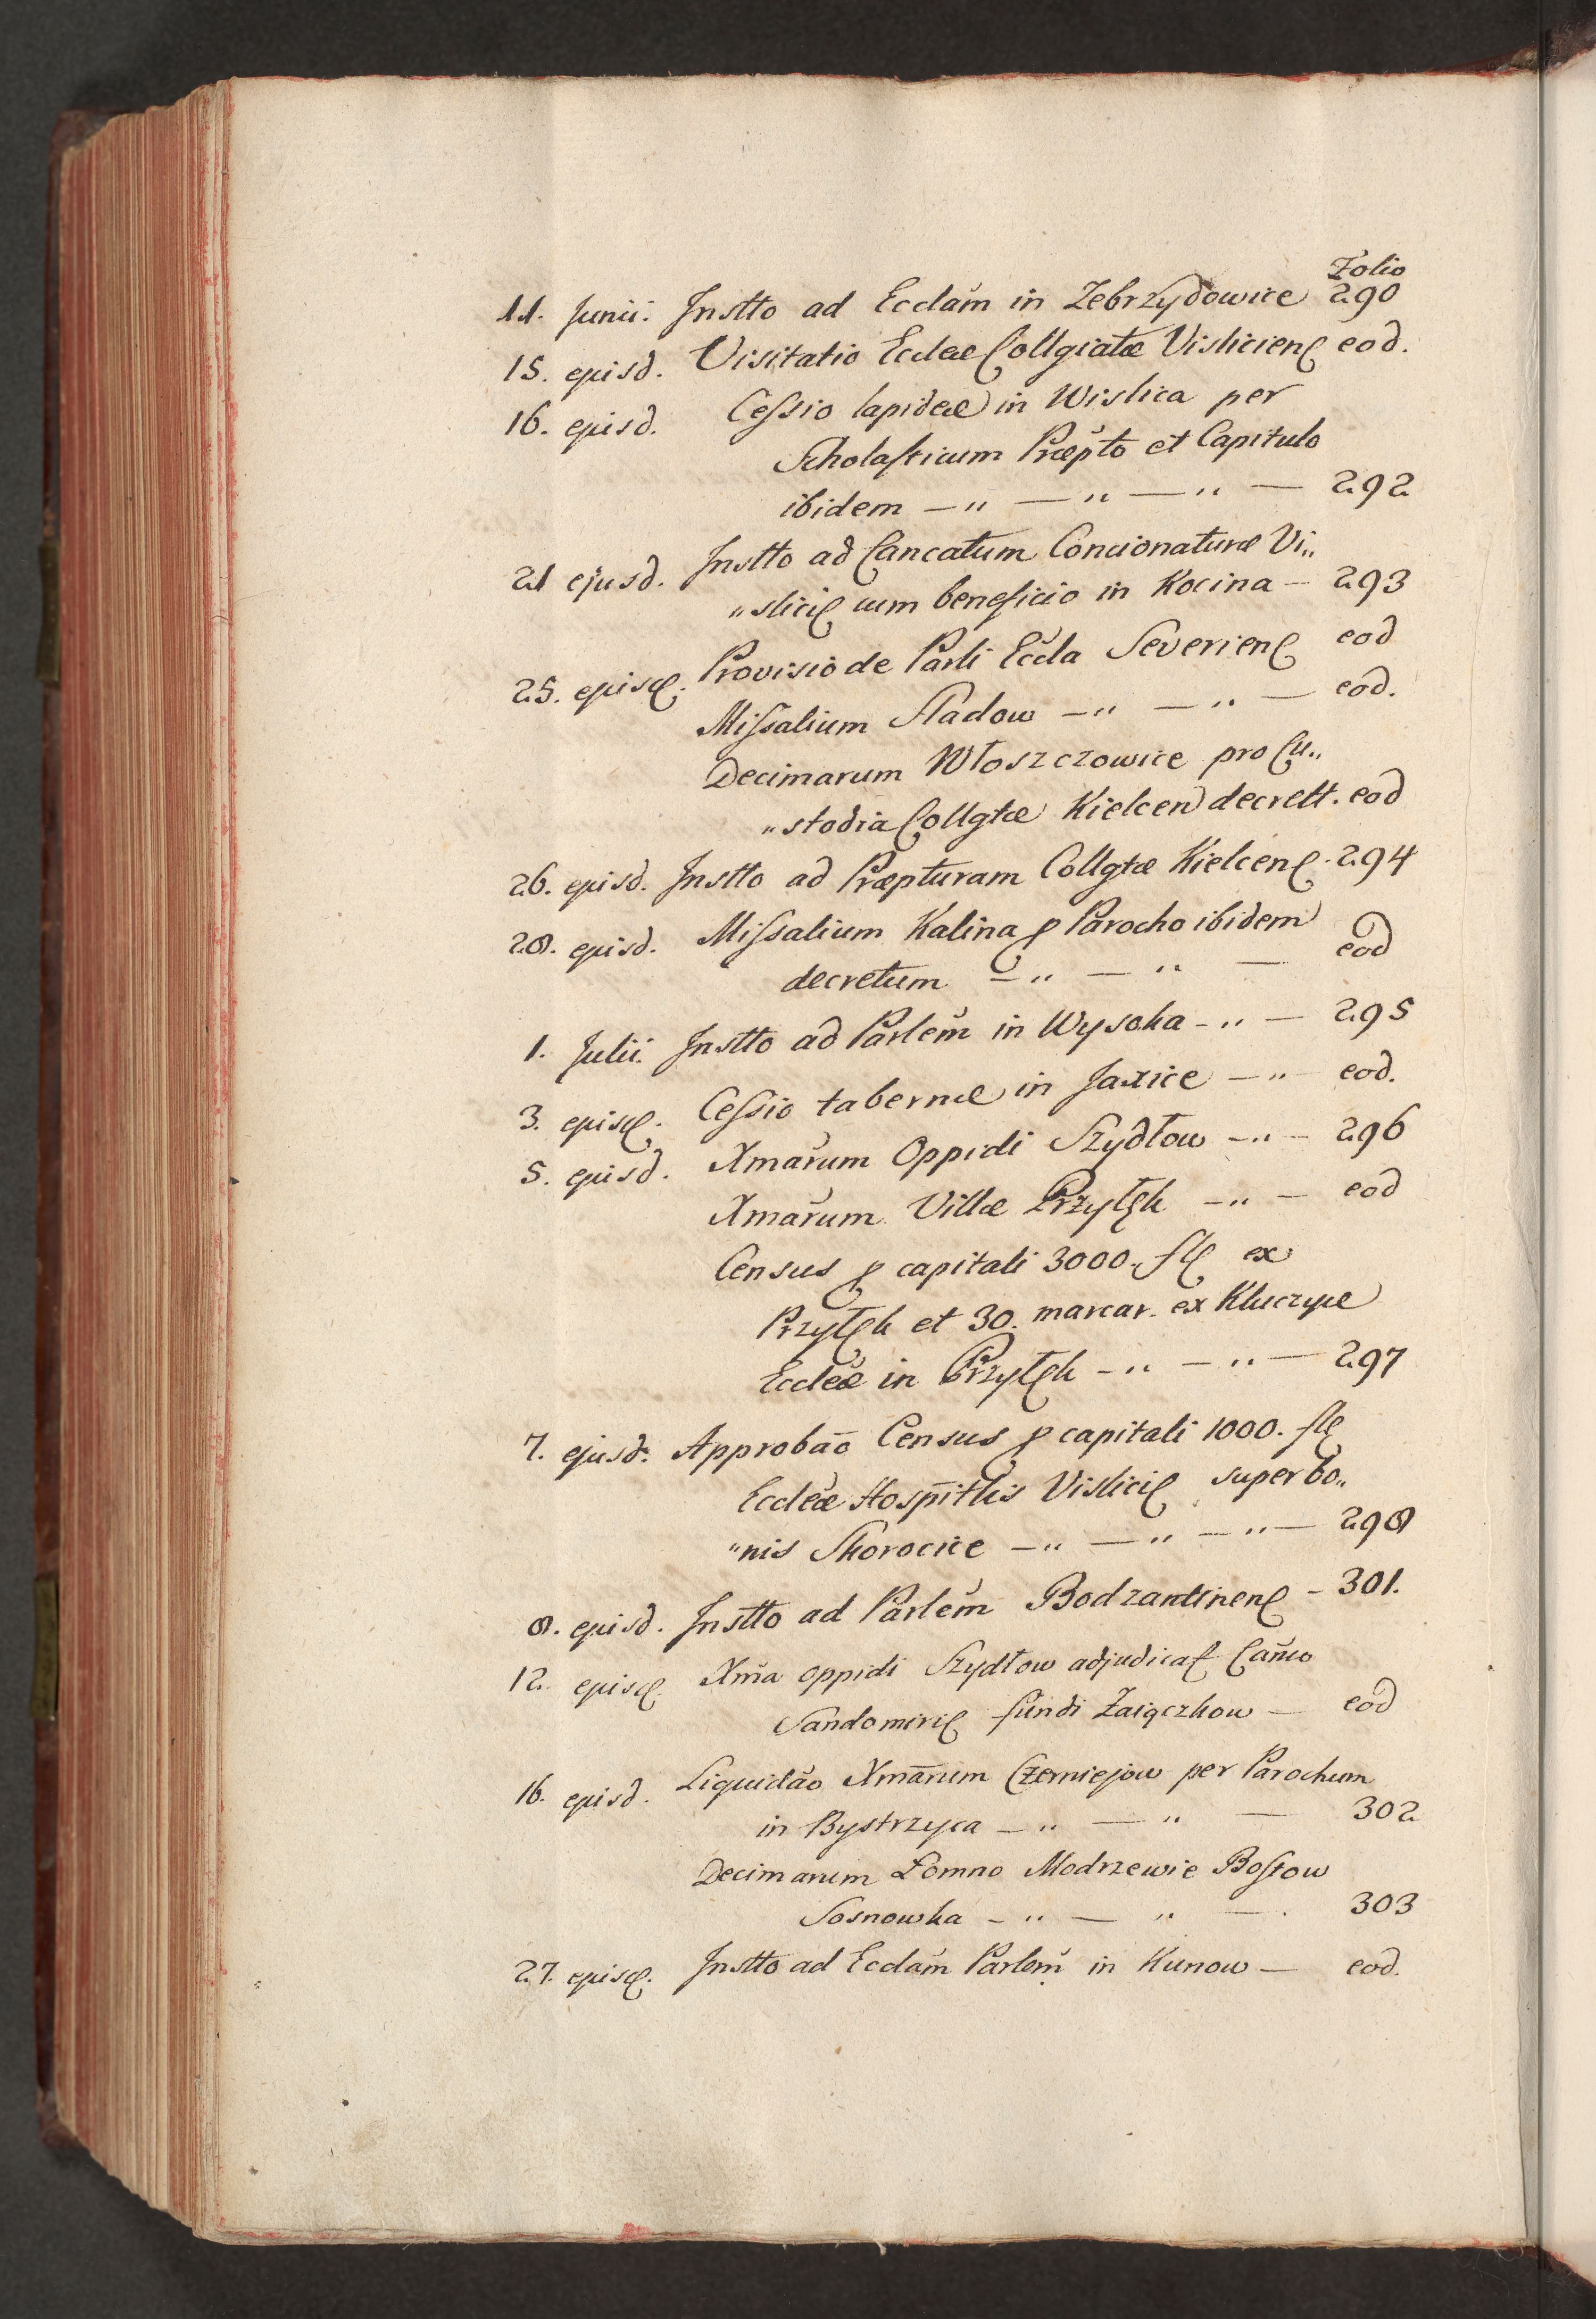 Folio
11. Junii. Instto ad Ecclam in Zebrzydowice 290
15. ejusd. Visitatio Eccleae Collgiatae Vislicien eod.
16. ejusd. Cessio lapideae in Wislica per
Scholasticum Praepto et Capitulo
ibidem — " — " — " — 292
21 ejusd. Instto ad Cancatum Concionaturae Vi„
„slicien cum beneficio in Kocina — 293
25. ejusd. Provisio de Parli Eccla Severien eod
Missalium Sladow — " — " — eod.
Decimarum Włoszczowice pro Cu„
„stodia Collgtae Kielcen decrett. eod
26. ejusd. Instto ad Praepturam Collgtae Kielcen. 294
28. ejusd. Missalium Kalina p Parocho ibidem
decretum — " — " — eod
1. Julii. Instto ad Parlem in Wysoka — " — 295
3. ejusd. Cessio tabernae in Jaxice — " — eod.
5. ejusd. Xmarum Oppidi Szydłow — " — 296
Xmarum Villae Przyłęk — " — eod
Census p capitali 3000. fl ex
Przyłęk et 30. marcar. ex Kluczyce
Eccleae in Przyłęk — " — " — 297
7. ejusd. Approbao Census p capitali 1000. fl
Eccleae Hospitlis Vislici super bo„
„nis Skorocice — " — " — " — 298
8. ejusd. Instto ad Parlem Bodzantinen — 301.
12. ejusd. Xma oppidi Szydłow adjudicat Canco
Sandomiri fundi Zaiączkow — eod
16. ejusd. Liquidao Xmarum Czerniejow per Parochum
in Bystrzyca — " — " — 302
Decimarum Łomno Modrzewie Bostow
Sosnowka — " — " — . 303
27. ejusd. Instto ad Ecclam Parlem in Kunow — eod.